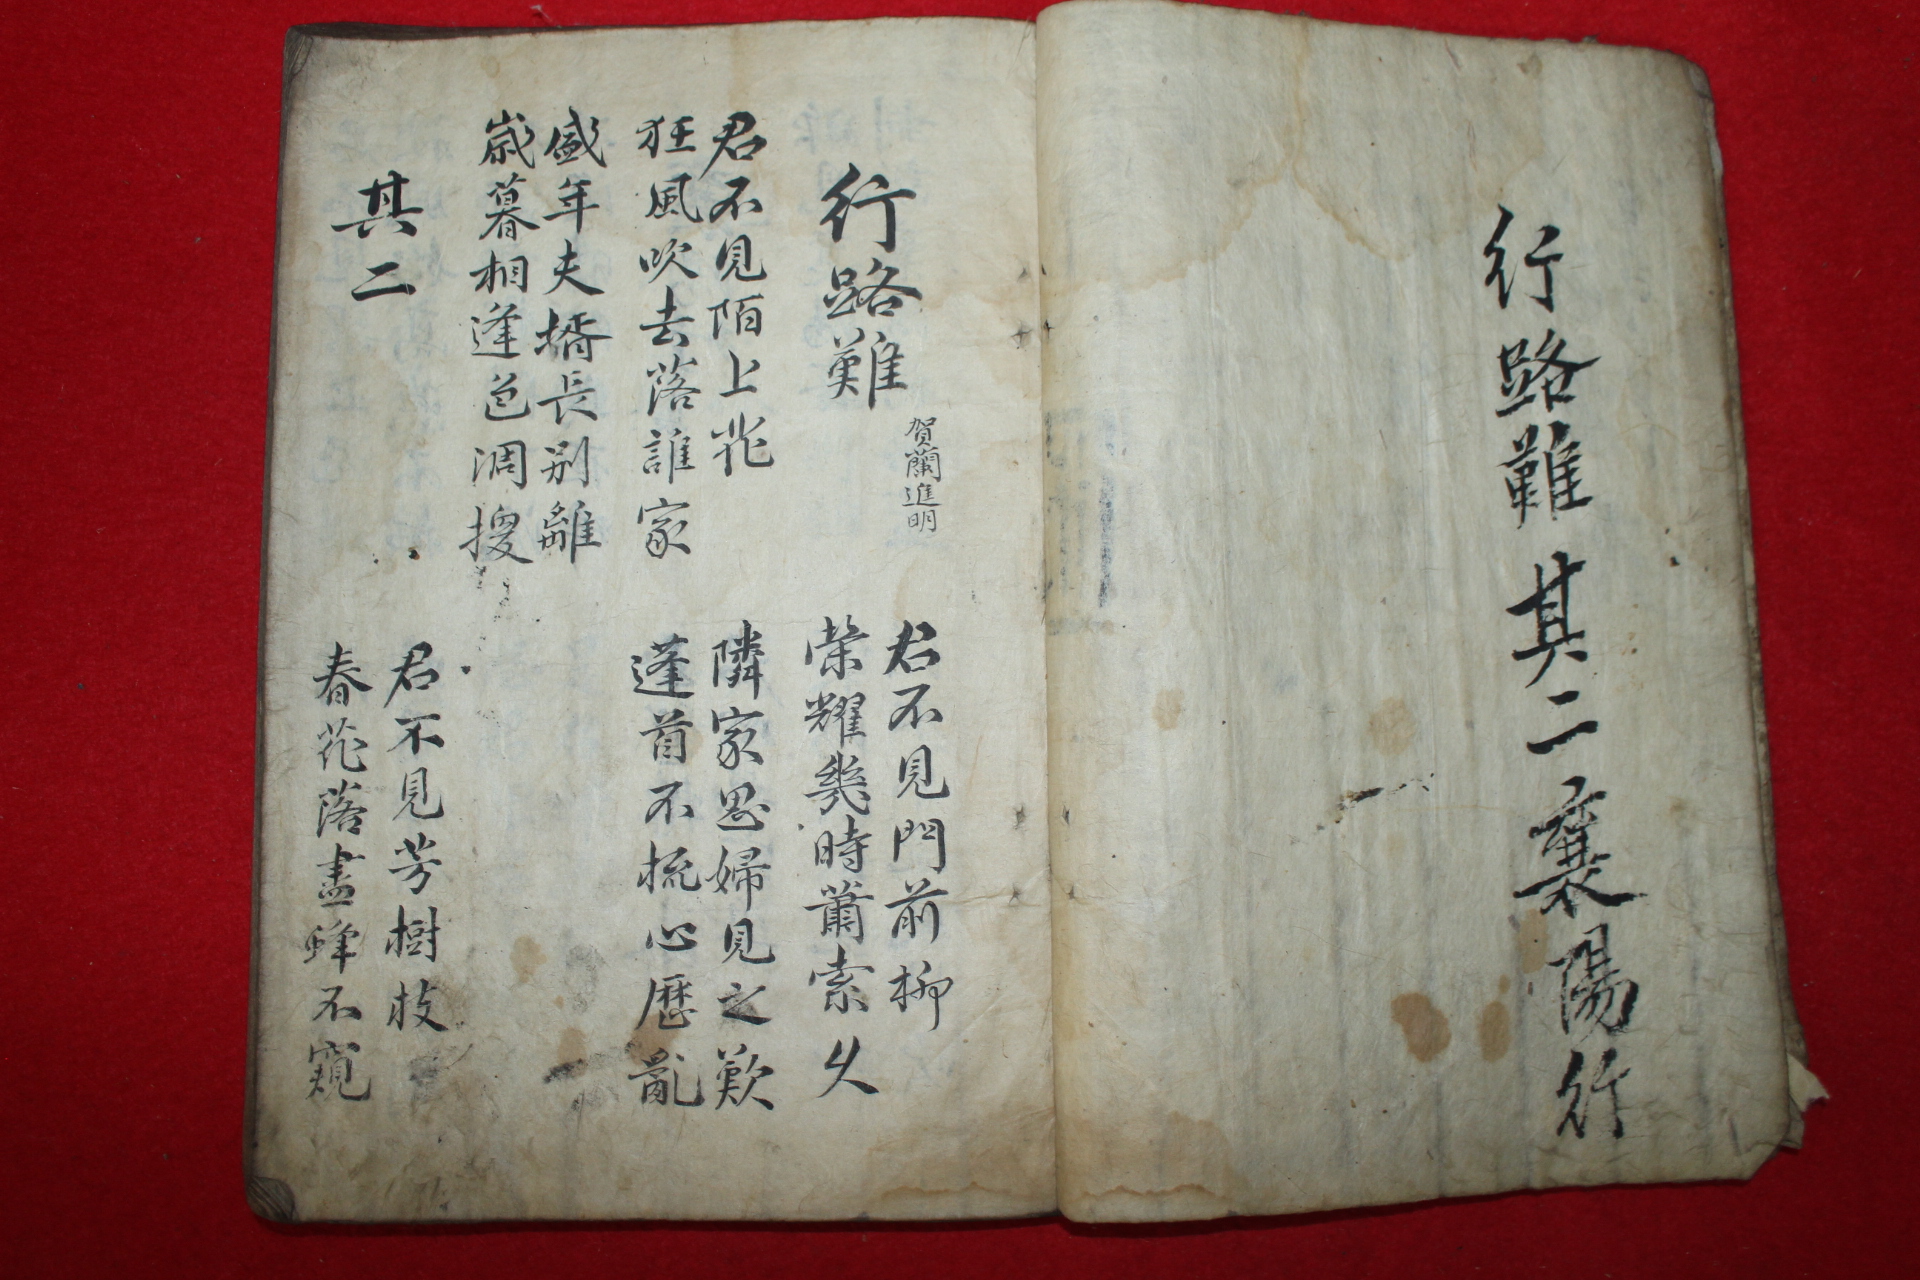 行路難 其二 襄陽行
行路難 賀蘭進明
君不見門前柳
榮耀幾時蕭索久
君不見陌上花
狂風吹去落誰家
隣家思婦見之歎
蓬首不梳心歷亂
盛年夫壻長別離
歲暮相逢色凋換
其二
君不見芳樹枝
春花落盡蜂不窺